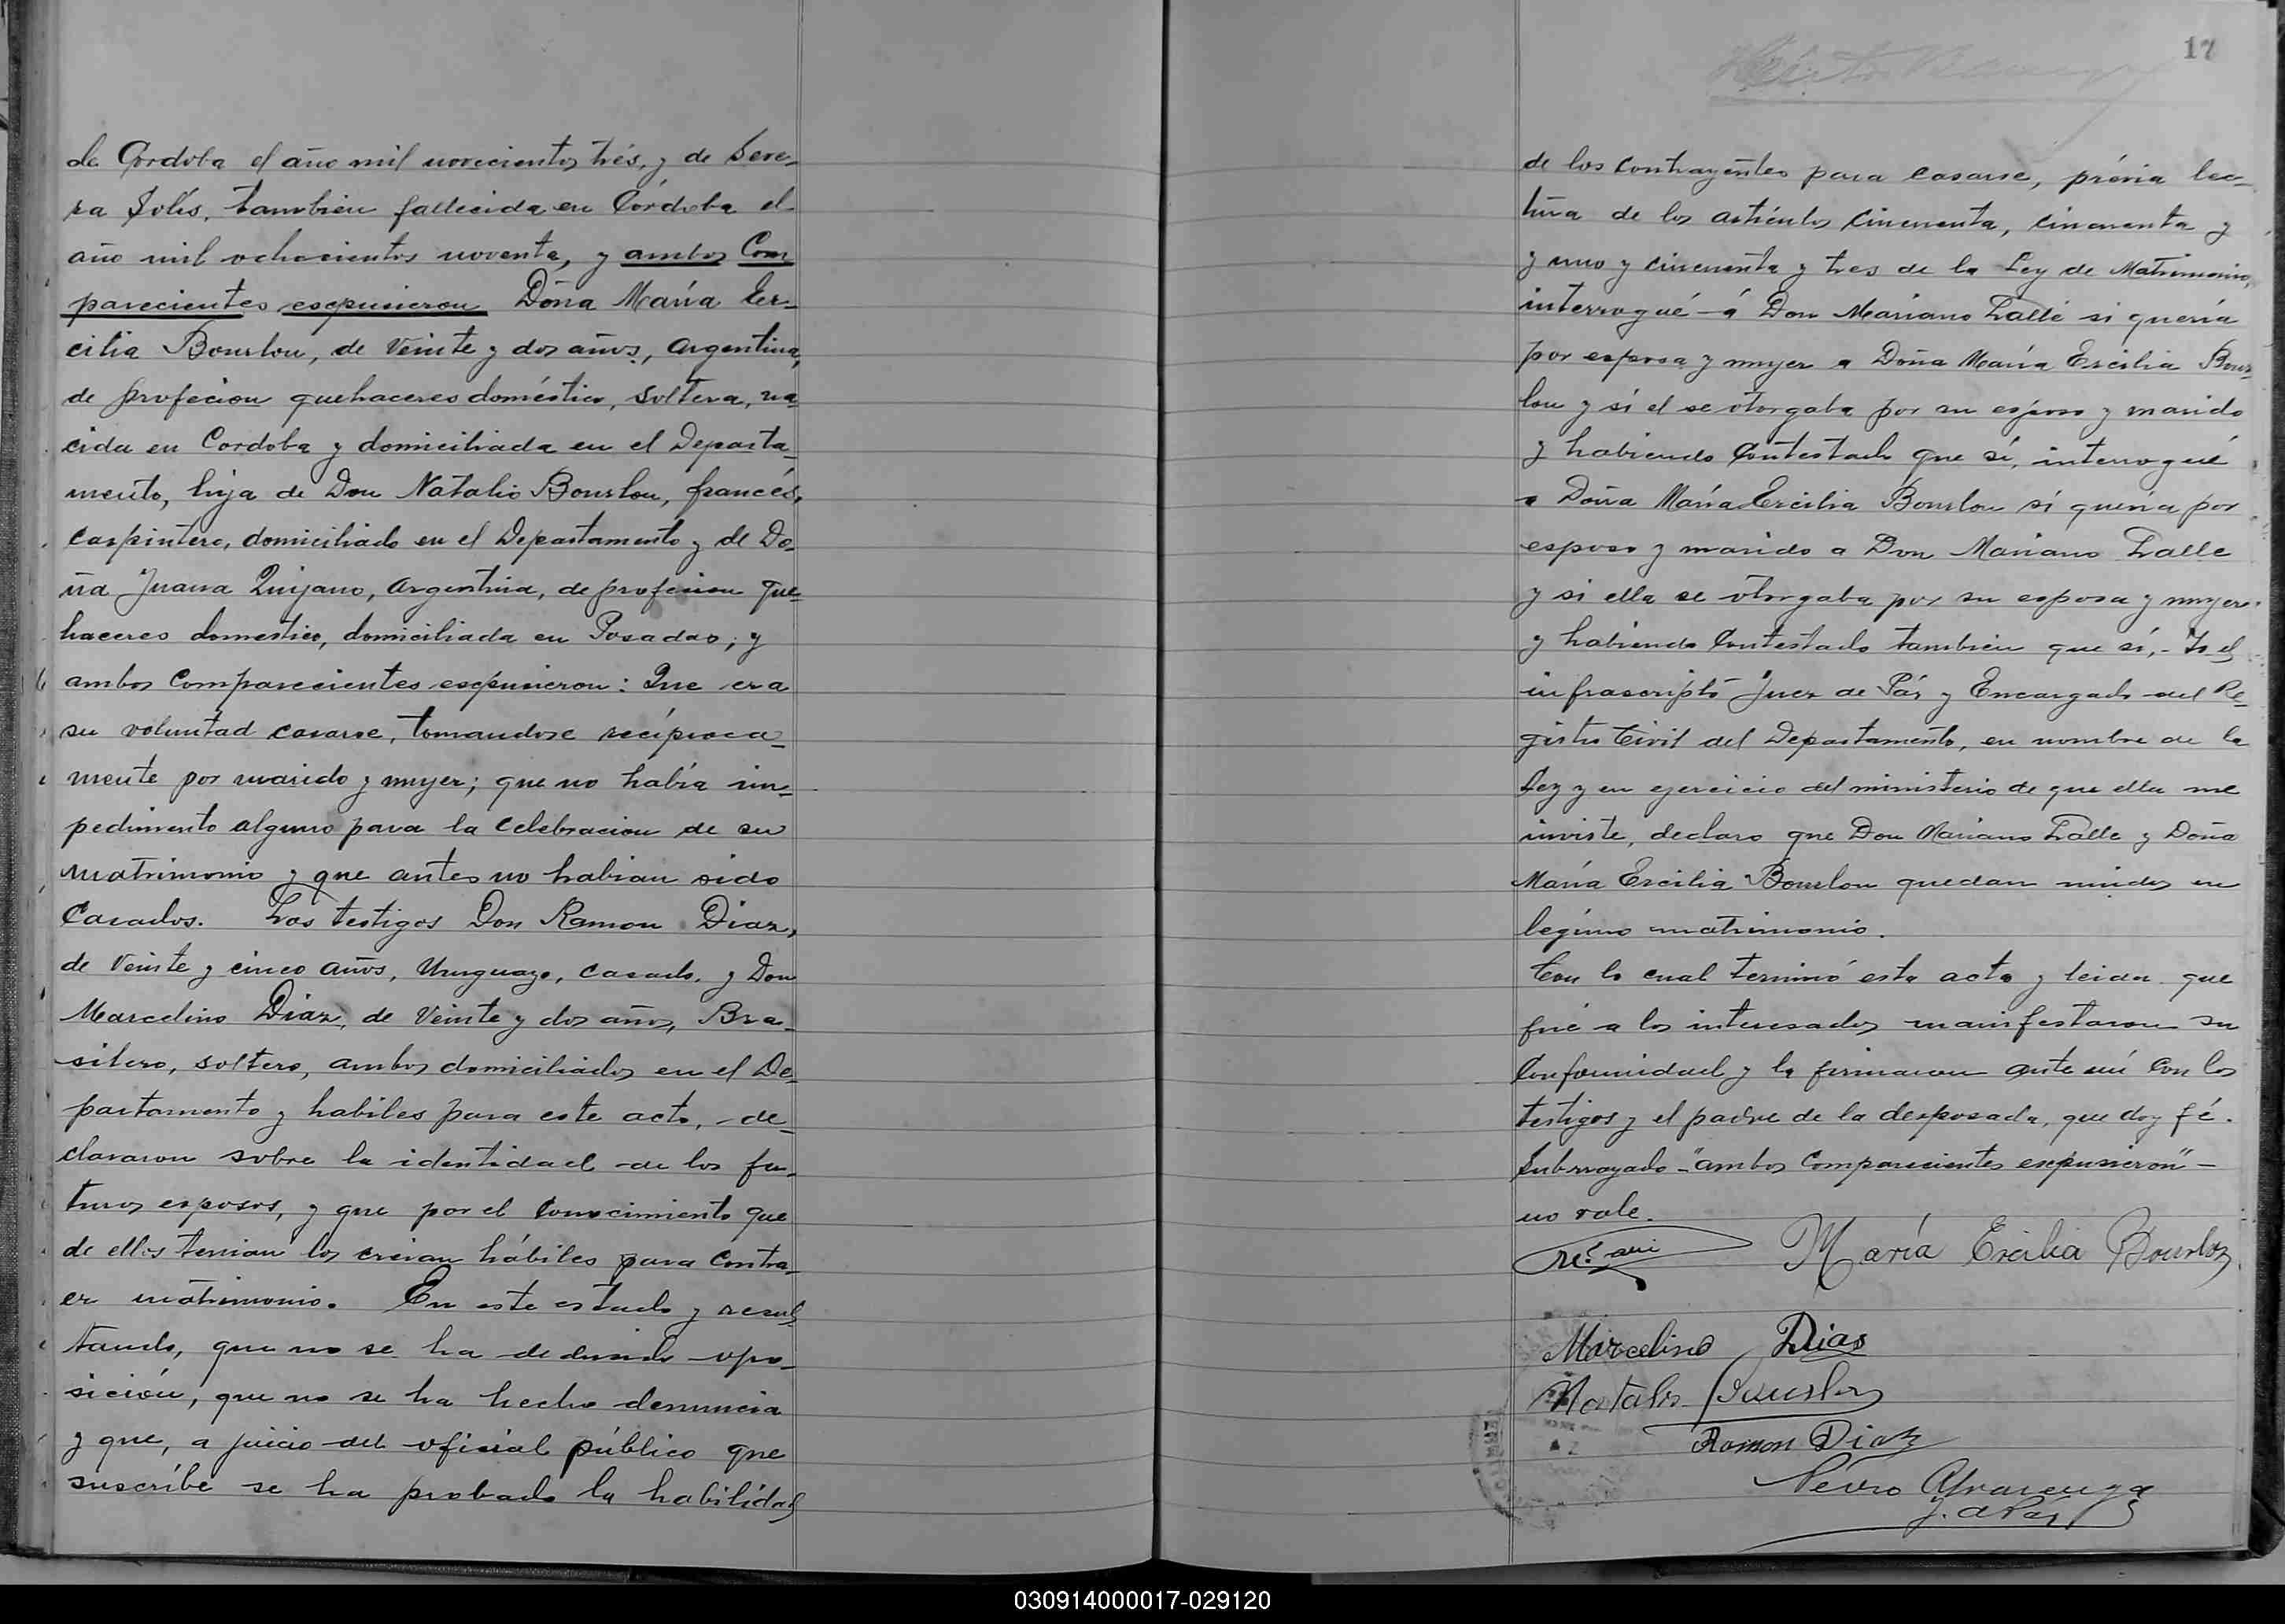 de Cordoba el año mil novecientos trés, y de Seve-
ra Solis, tambien fallecida en Córdoba el
año mil ochocientos noventa, y ambos Com
parecientes esepusieron Doña María Er-
cilia Bourlon, de Veinte y dos años, Argentina,
de profecion quehaceres doméstico, soltera, na-
cida en Cordoba y domiciliada en el Departa-
mento, hija de Don Natalio Bourlon, francés,
carpintero, domiciliado en el Departamento y de Do-
ña Juana Quijano, Argentina, de profecion que-
haceres domestico, domiciliada en Posadas; y
ambos Comparecientes esepusieron: Que era
su voluntad casarse, tomandose recíproca-
mente por marido y mujer; que no había im-
pedimento alguno para la Celebracion de su
matrimonio y que antes no habian sido
Casados. Los testigos Don Ramon Diaz,
de Veinte y cinco años, Uruguayo, casado, y Don
Marcelino Diaz, de Veinte y dos años, Bra-
silero, soltero, ambos domiciliados en el De-
partamento y habiles para este acto, - de-
clararon sobre la identidad de los fu-
turos esposos, y que por el Conocimiento que
de ellos tenian los creian hábiles para Contra-
er matrimonio. En este estado y resul
tando, que no se ha deducido opo-
sición, que no se ha hecho denuncia
y que, a juicio del oficial público que
suscríbe se ha probado la habilidad
17
de los Contrayentes para casarse, prévia lec-
tura de los artículos Cincuenta, cincuenta y
y uno y cincuenta y tres de la Ley de Matrimonio,
interrogué á Don Mariano Lalle si quería
por esposa y mujer a Doña María Ercilia Bour-
lon y sí el se otorgaba por su esposo y marido
y habiendo Contestado que sí, interrogué
a Doña María Ercilia Bourlon sí quería por
esposo y marido a Don Mariano Lalle
y si ella se otorgaba por su esposa y mujer
y habiendo Contestado tambien que sí, - Yo el
infrascripto Juez de Páz y Encargado del Re-
gistro Civil del Departamento, en nombre de la
Ley y en ejercicio del ministerio de que ella me
inviste, declaro que Don Mariano Lalle y Doña
María Ercilia Bourlon quedan unidos en
legímo matrimonio.
Con lo cual terminó esta acta y leida que
fué a los interesados manifestaron su
Conformidad y la firmaron ante mí Con los
testigos y el padre de la desposada, que doy fé.
Subrrayado - "ambos Comparecientes esepusieron" -
no vale.
María Ercilia Bourlon
Marcelino Dias
Natalio Bourlon
Ramon Diaz
J. de Páz
030914000017-029120